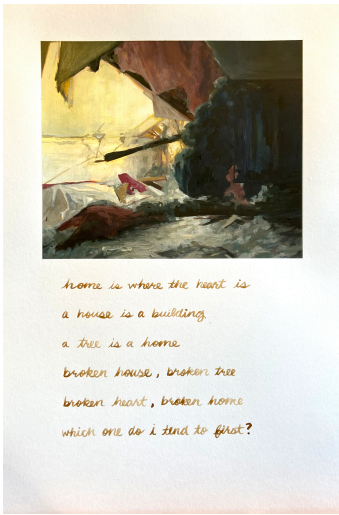 home is where the heart is
a house is a building
a tree is a home
broken house, broken tree
broken heart, broken home
which one do i tend to first?